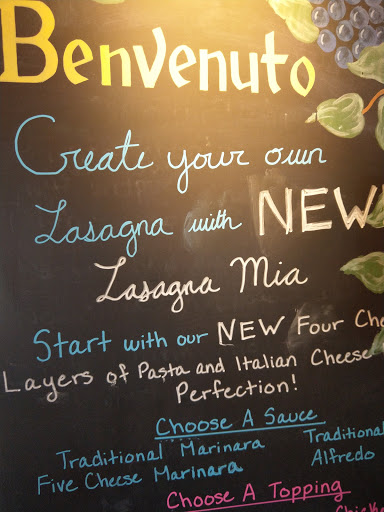 Benvenuto
Create your own
Lasagna with NEW
Lasagna Mia
Start with our NEW Four Che
Layers of Pasta and Italian Cheese
Perfection!
Choose A Sauce
Traditional Marinara Traditional
Five Cheese Marinara Alfredo
Choose A Topping